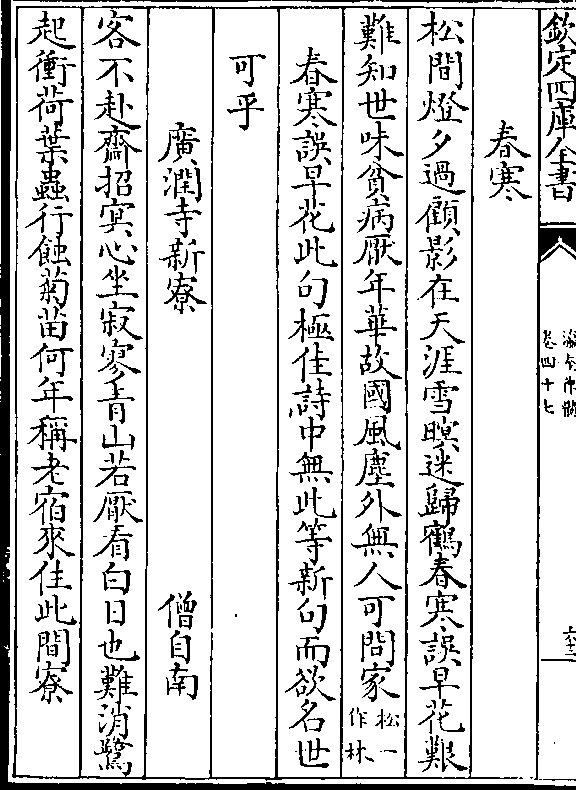 欽定四庫全書
瀛奎律髓
卷四十七
春寒
松間燈夕過顧影在天涯雪暝迷歸鶴春寒誤早花艱
難知世味貧病厭年華故國風塵外無人可問家松一作林
春寒誤早花此句極佳詩中無此等新句而欲名世
可乎
廣潤寺新寮　僧自南
客不赴齋招冥心坐寂寥青山若厭看白日也難消鷺
起衝荷葉蟲行蝕菊苗何年稱老宿來住此間寮